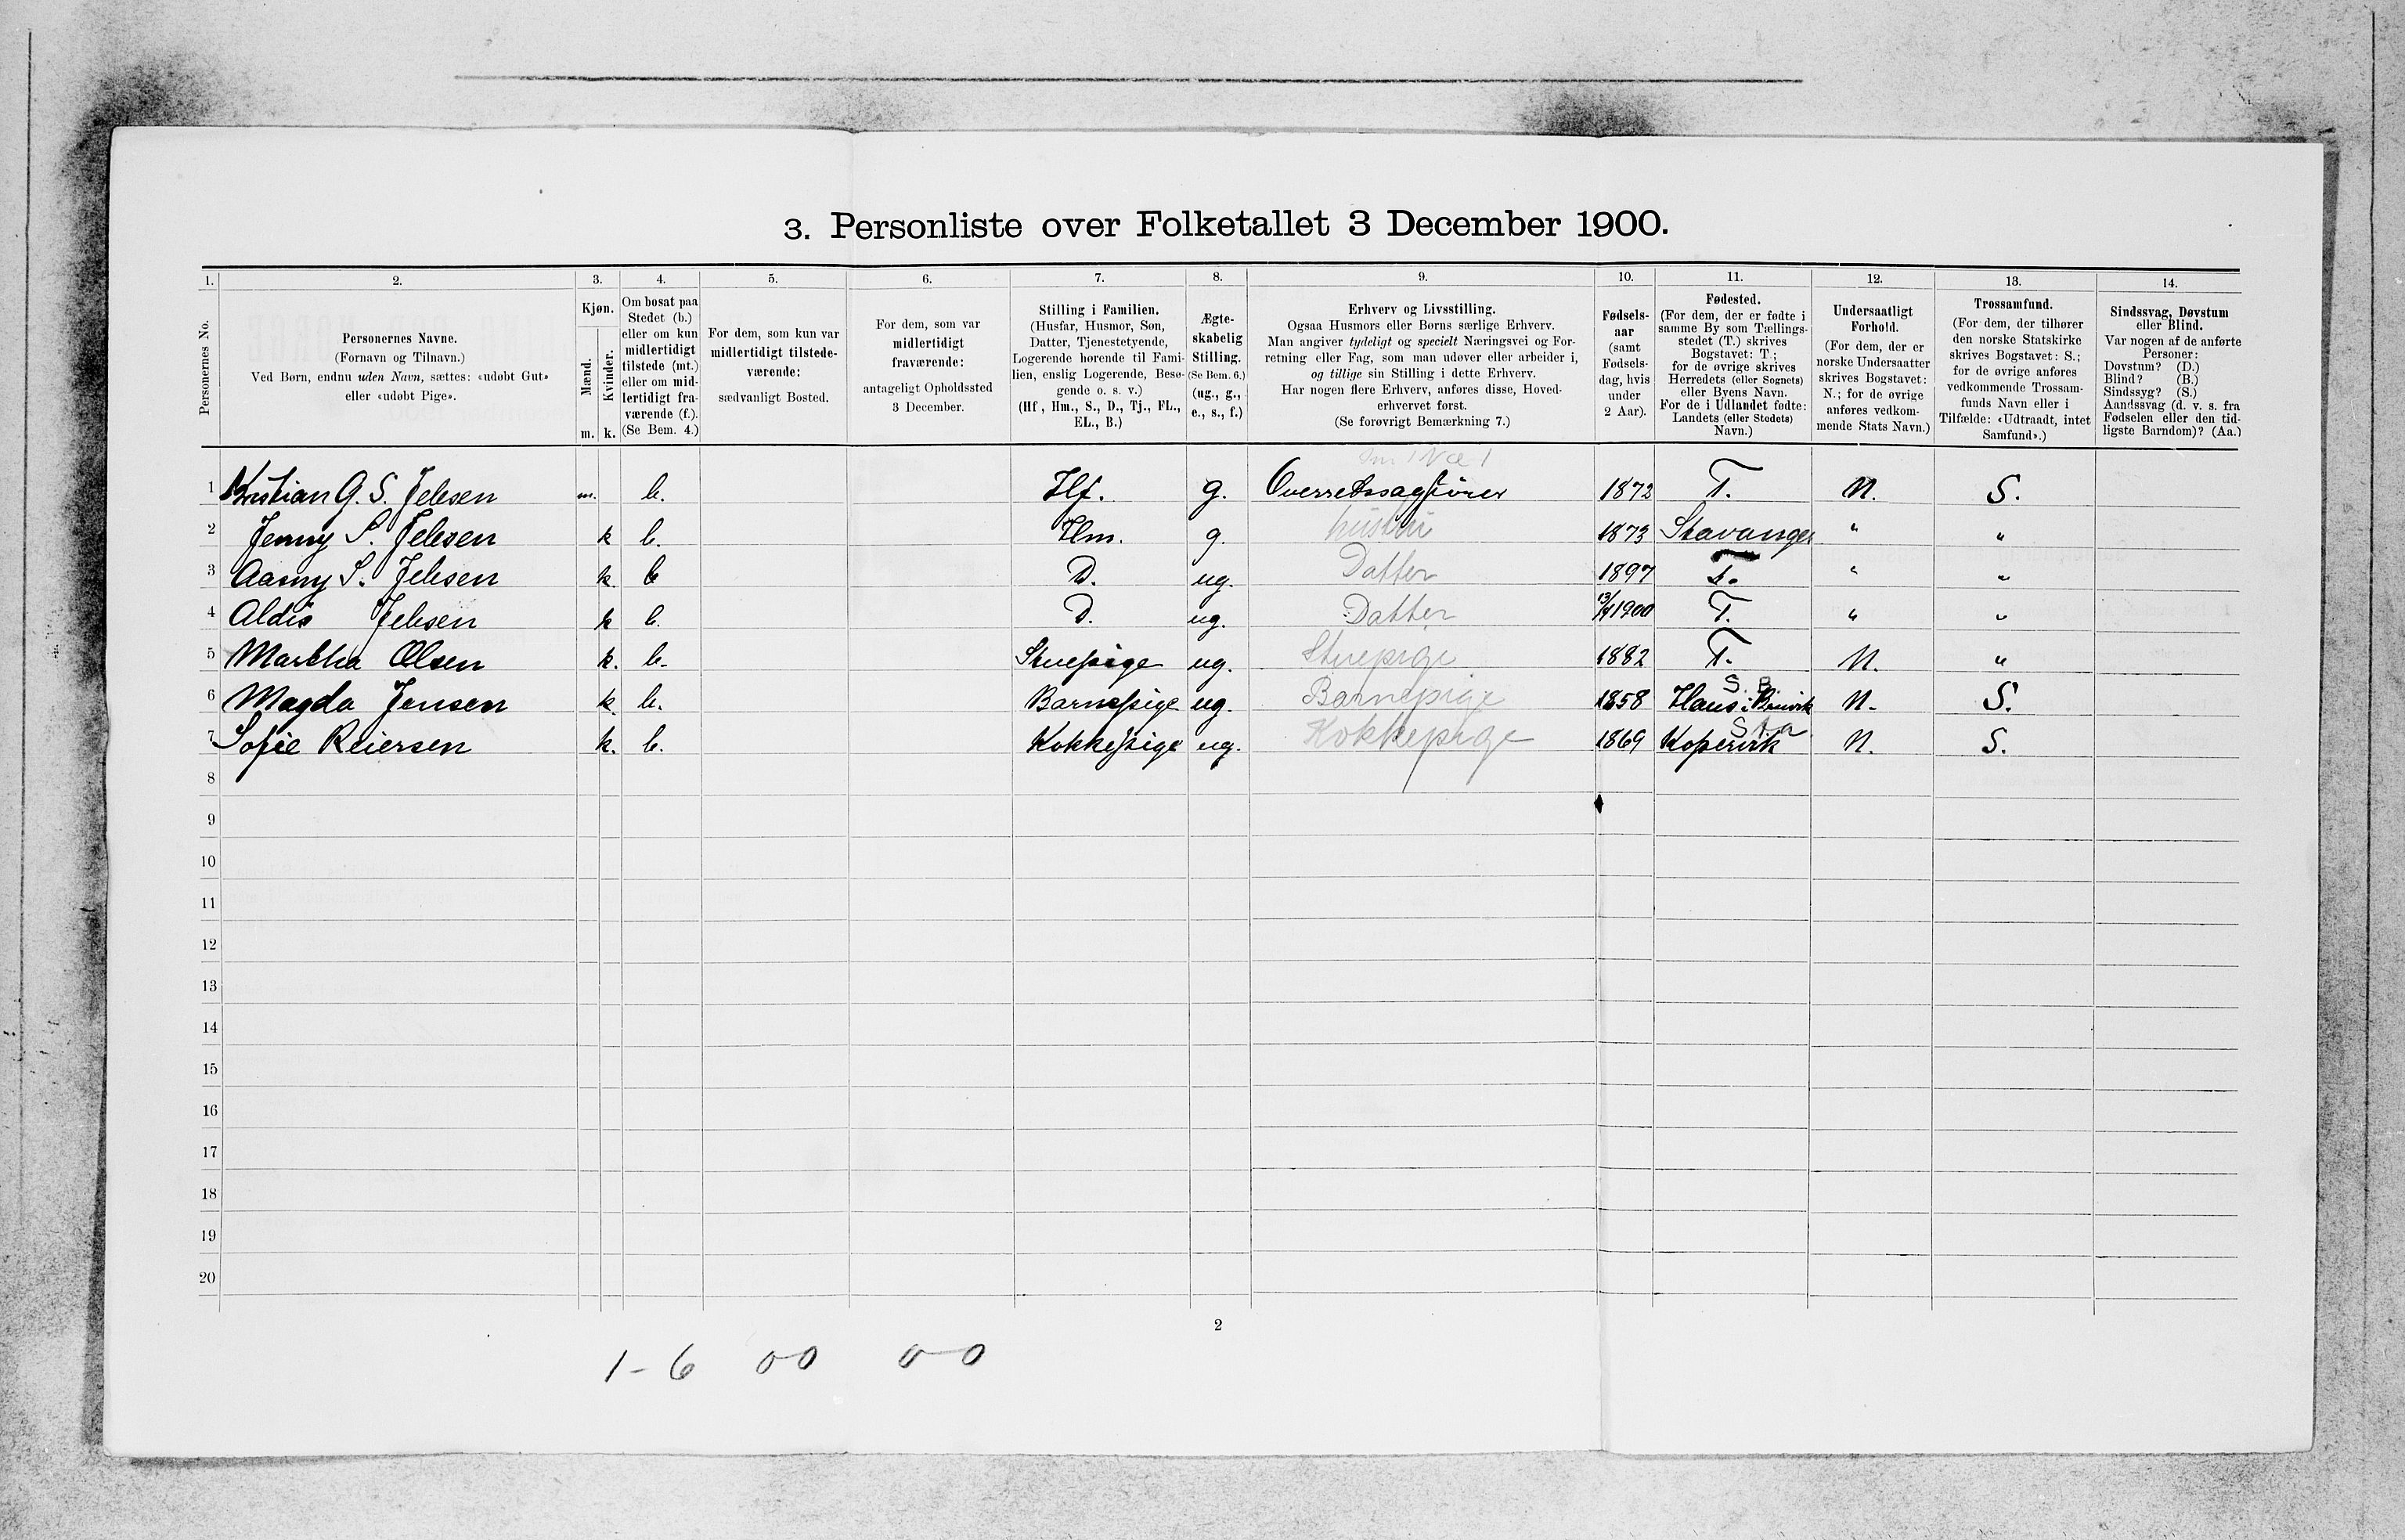 3. Personliste over Folketallet 3 December 1900.
1. 2. 3. 4. 5. 6. 7. 8. 9. 10. 11. 12. 13. 14.
Personernes No.
Personernes Navne.
(Fornavn og Tilnavn.)
Ved Børn, endnu uden Navn, sættes: «udøbt Gut»
eller «udøbt Pige».
Kjøn.
Mænd.
Kvinder.
m. k.
Om bosat paa
Stedet (b.)
eller om kun
midlertidigt
tilstede (mt.)
eller om mid-
lertidigt fra-
værende (f.).
(Se Bem. 4.)
For dem, som kun var
midlertidigt tilstede-
værende:
sædvanligt Bosted.
For dem, som var
midlertidigt
fraværende:
antageligt Opholdssted
3 December.
Stilling i Familien.
(Husfar, Husmor, Søn,
Datter, Tjenestetyende,
Logerende hørende til Fami-
lien, enslig Logerende, Besø-
gende o. s. v.)
(Hf, Hm., S., D., Tj., FL.,
EL., B.)
Ægte-
skabelig
Stilling.
(Se Bem. 6.)
(ug., g.,
e., s., f.)
Erhverv og Livsstilling.
Ogsaa Husmors eller Børns særlige Erhverv.
Man angiver tydeligt og specielt Næringsvei og For-
retning eller Fag, som man udøver eller arbeider i,
og tillige sin Stilling i dette Erhverv.
Har nogen flere Erhverv, anføres disse, Hoved-
erhvervet først.
(Se forøvrigt Bemærkning 7.)
Fødsels-
aar
(samt
Fødsels-
dag, hvis
under
2 Aar).
Fødested.
(For dem, der er fødte i
samme By som Tællings-
stedet (T.) skrives
Bogstavet: T;
for de øvrige skrives
Herredets (eller Sognets)
eller Byens Navn.
For de i Udlandet fødte:
Landets (eller Stedets)
Navn.)
Undersaatligt
Forhold.
(For dem, der er
norske Undersaatter
skrives Bogstavet:
N.; for de øvrige
anføres vedkom-
mende Stats Navn.)
Trossamfund.
(For dem, der tilhører
den norske Statskirke
skrives Bogstavet: S.;
for de øvrige anføres
vedkommende Trossam-
funds Navn eller i
Tilfælde: «Udtraadt, intet
Samfund».)
Sindssvag, Døvstum
eller Blind.
Var nogen af de anførte
Personer:
Døvstum? (D.)
Blind? (B.)
Sindssyg? (S.)
Aandssvag (d. v. s. fra
Fødselen eller den tid-
ligste Barndom)? (Aa.)
1 Kristian G. S. Jebsen m. b. Hf. g. Overretssagfører 1872 T. N. S.
2 Jenny S. Jebsen k b. Hm. g. hustru 1873 Stavanger " "
3 Aasny S. Jebsen k. b D. ug. Datter 1897 T. " "
4 Aldis Jebsen k b. D. ug. Datter 1900 T. " "
5 Martha Olsen k. b. Stuepige ug. Stuepige 1882 T. N. "
S. B.
6 Magda Jensen k. b. Barnepige ug. Barnepige 1858 Haus N. S.
7 Sofie Reiersen k. b. Kokkepige ug. Kokkepige 1869 Kopervik N. S.
8
9
10
11
12
13
14
15
16
17
18
19
20
2
1 - 6 0-0 0-0